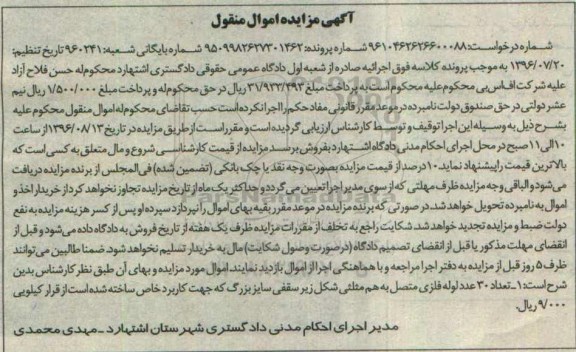 آگهی مزایده اموال منقول
شماره درخواست: ۹۶۱۰۴۶۲۶۲۶۶۰۰۰۸۸ شماره پرونده: ۹۵۰۹۹۸۲۶۲۷۳۰۱۴۶۲ شماره بایگانی شعبه: ۹۶۰۲۴۱ تاریخ تنظیم:
۱۳۹۶/۰۷/۲۰ به موجب پرونده کلاسه فوق اجرائیه صادره از شعبه اول دادگاه عمومی حقوقی دادگستری اشتهارد محکوم‌له حسن فلاح آزاد
علیه شرکت اف‌اس‌پی محکوم‌علیه محکوم است به پرداخت مبلغ ۳۷/۹۳۲/۴۹۳ ریال در حق محکوم‌له و پرداخت مبلغ ۱/۵۰۰/۰۰۰ ریال نیم
عشر دولتی در حق صندوق دولت نامبرده در موعد مقرر قانونی مفاد حکم را اجرا نکرده است حسب تقاضای محکوم‌له اموال منقول محکوم علیه
بشرح ذیل به وسیله این اجرا توقیف و توسط کارشناس ارزیابی گردیده است و مقرر است از طریق مزایده در تاریخ ۱۳۹۶/۰۸/۱۳ از ساعت
۱۰ الی ۱۱ صبح در محل اجرای احکام مدنی دادگاه اشتهارد بفروش برسد مزایده از قیمت کارشناسی شروع و مال متعلق به کسی است که
بالاترین قیمت را پیشنهاد نماید. ۱۰ درصد از قیمت مزایده بصورت وجه نقد یا چک بانکی (تضمین شده) فی‌المجلس از برنده مزایده دریافت
می‌شود و الباقی وجه مزایده ظرف مهلتی که از سوی مدیر اجرا تعیین می‌گردد و حداکثر یک ماه از تاریخ مزایده تجاوز نخواهد کرد از خریدار اخذ و
اموال به نامبرده تحویل خواهد شد، در صورتی که برنده مزایده در موعد مقرر بقیه بهای اموال را نپردازد سپرده او پس از کسر هزینه مزایده به نفع
دولت ضبط و مزایده تجدید خواهد شد. شکایت راجع به تخلف از مقررات مزایده ظرف یک هفته از تاریخ فروش به دادگاه داده می‌شود و قبل از
انقضای مهلت مذکور یا قبل از انقضای تصمیم دادگاه (در صورت وصول شکایت) مال به خریدار تسلیم نخواهد شود. ضمنا طالبین می‌توانند
ظرف ۵ روز قبل از مزایده به دفتر اجرا مراجعه و با هماهنگی اجرا از اموال بازدید نمایند. اموال مورد مزایده و بهای آن طبق نظر کارشناس بدین
شرح است: ۱- تعداد ۳۰ عدد لوله فلزی متصل به هم مثلثی شکل زیر سقفی سایز بزرگ که جهت کاربرد خاص ساخته شده است از قرار کیلویی
۹/۰۰۰ ریال.
مدیر اجرای احکام مدنی دادگستری شهرستان اشتهارد - مهدی محمدی